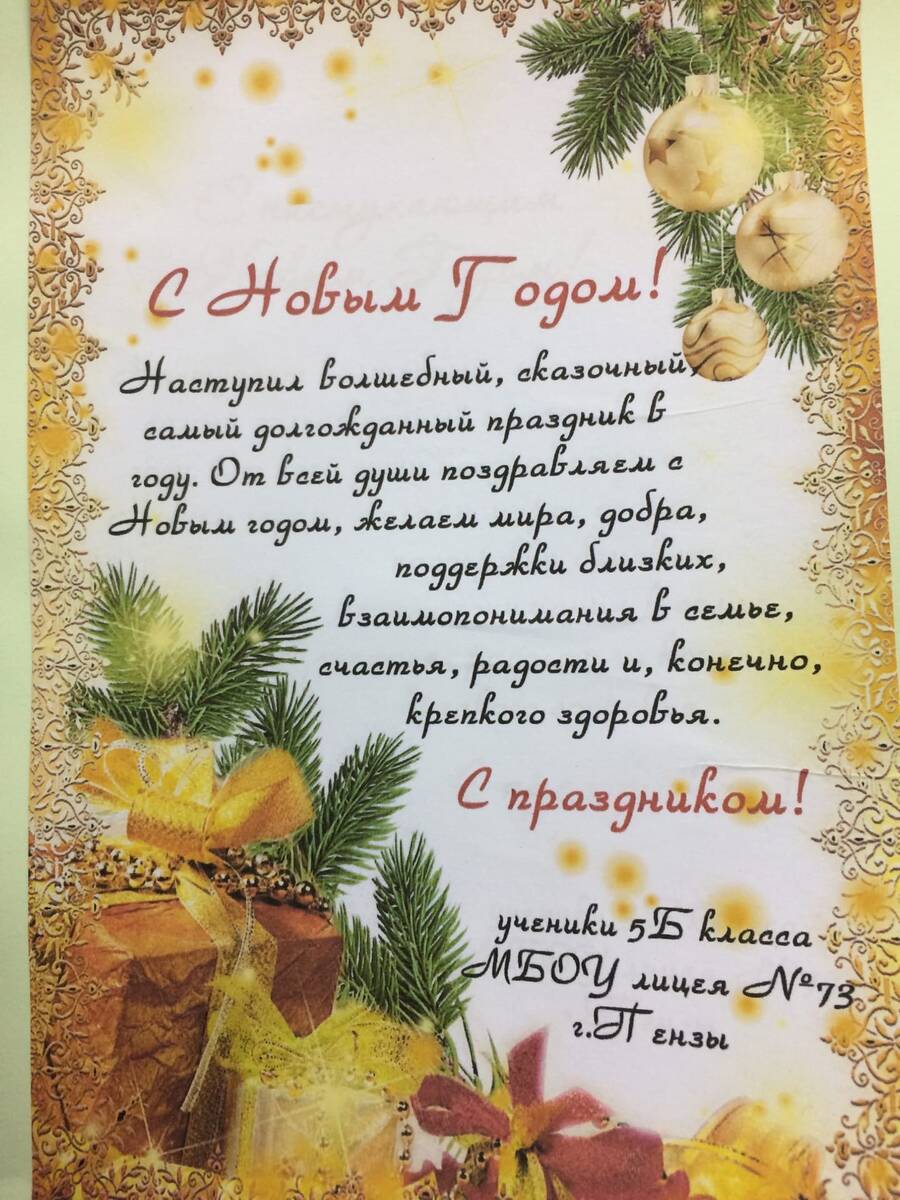 С Новым Годом!
Наступил волшебный, сказочный,
самый долгожданный праздник в
году. От всей души поздравляем с
Новым годом, желаем мира, добра,
поддержки близких,
взаимопонимания в семье,
счастья, радости и, конечно,
крепкого здоровья.
С праздником!
ученики 5Б класса
МБОУ лицея №73
г.Пензы